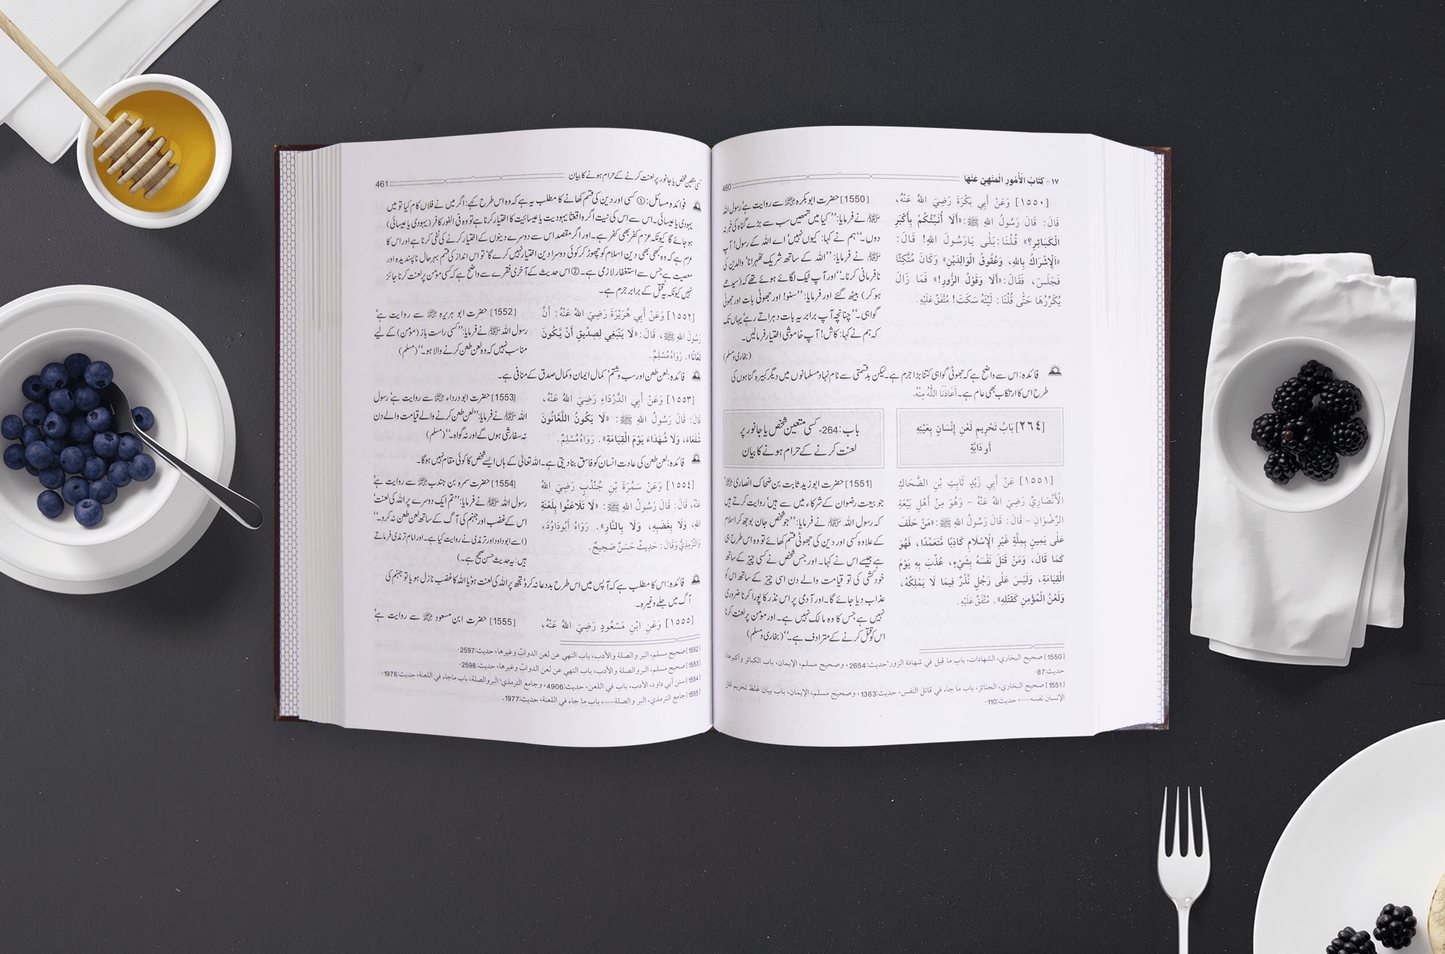 ١٧ - كتاب الأمور المنهي عنها
460
[١٥٥٠] وَعَنْ أَبِي بَكْرَةَ رَضِيَ اللهُ عَنْهُ،
قَالَ: قَالَ رَسُولُ اللهِ ﷺ: «أَلَا أُنَبِّئُكُمْ بِأَكْبَرِ
الْكَبَائِرِ؟» قُلْنَا: بَلَى يَارَسُولَ اللهِ! قَالَ:
«الْإِشْرَاكُ بِاللهِ، وَعُقُوقُ الْوَالِدَيْنِ» وَكَانَ مُتَّكِئًا
فَجَلَسَ، فَقَالَ: «أَلَا وَقَوْلُ الزُّورِ!» فَمَا زَالَ
يُكَرِّرُهَا حَتَّى قُلْنَا: لَيْتَهُ سَكَتَ! مُتَّفَقٌ عَلَيْهِ.
[1550] حضرت ابوبکرہ ؓ سے روایت ہے رسول اللہ
ﷺ نے فرمایا: ’’کیا میں تمھیں سب سے بڑے گناہ کی خبر نہ
دوں۔‘‘ ہم نے کہا: کیوں نہیں‘ اے اللہ کے رسول! آپ
ﷺ نے فرمایا: ’’اللہ کے ساتھ شریک ٹھہرانا‘ والدین کی
نافرمانی کرنا۔‘‘ اور آپ ٹیک لگائے ہوئے تھے کہ (سیدھے
ہو کر) بیٹھ گئے اور فرمایا: ’’سنو! اور جھوٹی بات اور جھوٹی
گواہی۔‘‘ چنانچہ آپ برابر یہ بات دہراتے رہے یہاں تک
کہ ہم نے کہا: کاش! آپ خاموشی اختیار فرمالیں۔
(بخاری ومسلم)
فائدہ: اس سے واضح ہے کہ جھوٹی گواہی کتنا بڑا جرم ہے۔ لیکن بدقسمتی سے نام نہاد مسلمانوں میں دیگر کبیرہ گناہوں کی
طرح اس کا ارتکاب بھی عام ہے۔ أَعَاذَنَا اللهُ مِنْهُ.
[٢٦٤] بَابُ تَحْرِيمِ لَعْنِ إِنْسَانٍ بِعَيْنِهِ
أَوْ دَابَّةٍ
باب: 264- کسی متعین شخص یا جانور پر
لعنت کرنے کے حرام ہونے کا بیان
[١٥٥١] عَنْ أَبِي زَيْدٍ ثَابِتِ بْنِ الضَّحَّاكِ
الْأَنْصَارِيِّ رَضِيَ اللهُ عَنْهُ - وَهُوَ مِنْ أَهْلِ بَيْعَةِ
الرِّضْوَانِ - قَالَ: قَالَ رَسُولُ اللهِ ﷺ: «مَنْ حَلَفَ
عَلَى يَمِينٍ بِمِلَّةٍ غَيْرِ الْإِسْلَامِ كَاذِبًا مُتَعَمِّدًا، فَهُوَ
كَمَا قَالَ، وَمَنْ قَتَلَ نَفْسَهُ بِشَيْءٍ، عُذِّبَ بِهِ يَوْمَ
الْقِيَامَةِ، وَلَيْسَ عَلَى رَجُلٍ نَذْرٌ فِيمَا لَا يَمْلِكُهُ،
وَلَعْنُ الْمُؤْمِنِ كَقَتْلِهِ». مُتَّفَقٌ عَلَيْهِ.
[1551] حضرت ابوزید ثابت بن ضحاک انصاری ؓ
جو بیعت رضوان کے شرکاء میں سے ہیں‘ روایت کرتے ہیں
کہ رسول اللہ ﷺ نے فرمایا: ’’جو شخص جان بوجھ کر اسلام
کے علاوہ کسی اور دین کی جھوٹی قسم کھائے تو وہ اس طرح ہی
ہے جیسے اس نے کہا۔ اور جس شخص نے کسی چیز کے ساتھ
خودکشی کی تو قیامت والے دن اسی چیز کے ساتھ اس کو
عذاب دیا جائے گا۔ اور آدمی پر اس نذر کا پورا کرنا ضروری
نہیں ہے جس کا وہ مالک نہیں ہے۔ اور مومن پر لعنت کرنا
اس کو قتل کرنے کے مترادف ہے۔‘‘ (بخاری ومسلم)
[1550] صحيح البخاري، الشهادات، باب ما قيل في شهادة الزور، حديث:2654، وصحيح مسلم، الإيمان، باب الكبائر وأكبرها،
حديث:87.
[1551] صحيح البخاري، الجنائز، باب ما جاء في قاتل النفس، حديث:1363، وصحيح مسلم، الإيمان، باب بيان غلظ تحريم قتل
الإنسان نفسه......، حديث:110.
کسی متعین شخص یا جانور پر لعنت کرنے کے حرام ہونے کا بیان
461
فوائد ومسائل: ① کسی اور دین کی قسم کھانے کا مطلب ہے کہ وہ اس طرح کہے: اگر میں نے فلاں کام کیا تو میں
یہودی یا عیسائی۔ اس سے اس کی نیت اگر واقعتاً یہودیت یا عیسائیت کا اختیار کرنا ہے تو وہ فی الفور کافر (یہودی یا عیسائی)
ہو جائے گا کیونکہ عزم کفر بھی کفر ہے۔ اور اگر مقصد اس سے دوسرے دینوں کے اختیار کرنے کی نفی کرنا ہے اور اس کا
عزم ہے کہ وہ کبھی بھی دین اسلام کو چھوڑ کر کوئی دوسرا دین اختیار نہیں کرے گا‘ تو اس انداز کی قسم بہرحال ناپسندیدہ اور
معصیت ہے جس سے استغفار لازمی ہے۔ ② اس حدیث کے آخری فقرے سے واضح ہے کہ کسی مومن پر لعنت کرنا جائز
نہیں کیونکہ یہ قتل کے برابر جرم ہے۔
[١٥٥٢] وَعَنْ أَبِي هُرَيْرَةَ رَضِيَ اللهُ عَنْهُ: أَنَّ
رَسُولَ اللهِ ﷺ، قَالَ: «لَا يَنْبَغِي لِصِدِّيقٍ أَنْ يَكُونَ
لَعَّانًا». رَوَاهُ مُسْلِمٌ.
[1552] حضرت ابو ہریرہ ؓ سے روایت ہے‘
رسول اللہ ﷺ نے فرمایا: ’’کسی راست باز (مومن) کے لیے
مناسب نہیں کہ وہ لعن طعن کرنے والا ہو۔‘‘ (مسلم)
فائدہ: لعن طعن اور سب وشتم‘ کمال ایمان وکمال صدق کے منافی ہے۔
[١٥٥٣] وَعَنْ أَبِي الدَّرْدَاءِ رَضِيَ اللهُ عَنْهُ،
قَالَ: قَالَ رَسُولُ اللهِ ﷺ: «لَا يَكُونُ اللَّعَّانُونَ
شُفَعَاءَ، وَلَا شُهَدَاءَ يَوْمَ الْقِيَامَةِ». رَوَاهُ مُسْلِمٌ.
[1553] حضرت ابو درداء ؓ سے روایت ہے رسول
اللہ ﷺ نے فرمایا: ’’لعن طعن کرنے والے قیامت والے دن
نہ سفارشی ہوں گے اور نہ گواہ۔‘‘ (مسلم)
فائدہ: لعن طعن کی عادت انسان کو فاسق بنا دیتی ہے۔ اللہ تعالیٰ کے ہاں ایسے شخص کا کوئی مقام نہیں ہوگا۔
[١٥٥٤] وَعَنْ سَمُرَةَ بْنِ جُنْدُبٍ رَضِيَ اللهُ
عَنْهُ، قَالَ: قَالَ رَسُولُ اللهِ ﷺ: «لَا تَلَاعَنُوا بِلَعْنَةِ
اللهِ، وَلَا بِغَضَبِهِ، وَلَا بِالنَّارِ». رَوَاهُ أَبُودَاوُدَ،
وَالتِّرْمِذِيُّ وَقَالَ: حَدِيثٌ حَسَنٌ صَحِيحٌ.
[1554] حضرت سمرہ بن جندب ؓ سے روایت ہے‘
رسول اللہ ﷺ نے فرمایا: ’’تم ایک دوسرے پر اللہ کی لعنت‘
اس کے غضب اور جہنم کی آگ کے ساتھ لعن طعن نہ کرو۔‘‘
(اسے ابوداود اور ترمذی نے روایت کیا ہے۔ اور امام ترمذی فرماتے
ہیں: یہ حدیث حسن صحیح ہے۔)
فائدہ: اس کا مطلب ہے کہ آپس میں اس طرح بددعا نہ کرو: تجھ پر اللہ کی لعنت ہو‘ یا اللہ کا غضب نازل ہو یا تو جہنم کی
آگ میں جلے وغیرہ۔
[١٥٥٥] وَعَنِ ابْنِ مَسْعُودٍ رَضِيَ اللهُ عَنْهُ،
[1555] حضرت ابن مسعود ؓ سے روایت ہے‘
[1552] صحيح مسلم، البر والصلة والأدب، باب النهي عن لعن الدواب وغيرها، حديث:2597.
[1553] صحيح مسلم، البر والصلة والأدب، باب النهي عن لعن الدواب وغيرها، حديث:2598.
[1554] سنن أبي داود، الأدب، باب في اللعن، حديث:4906، وجامع الترمذي، البر والصلة، باب ماجاء في اللعنة، حديث:1976.
[1555] جامع الترمذي، البر والصلة......، باب ما جاء في اللعنة، حديث:1977.